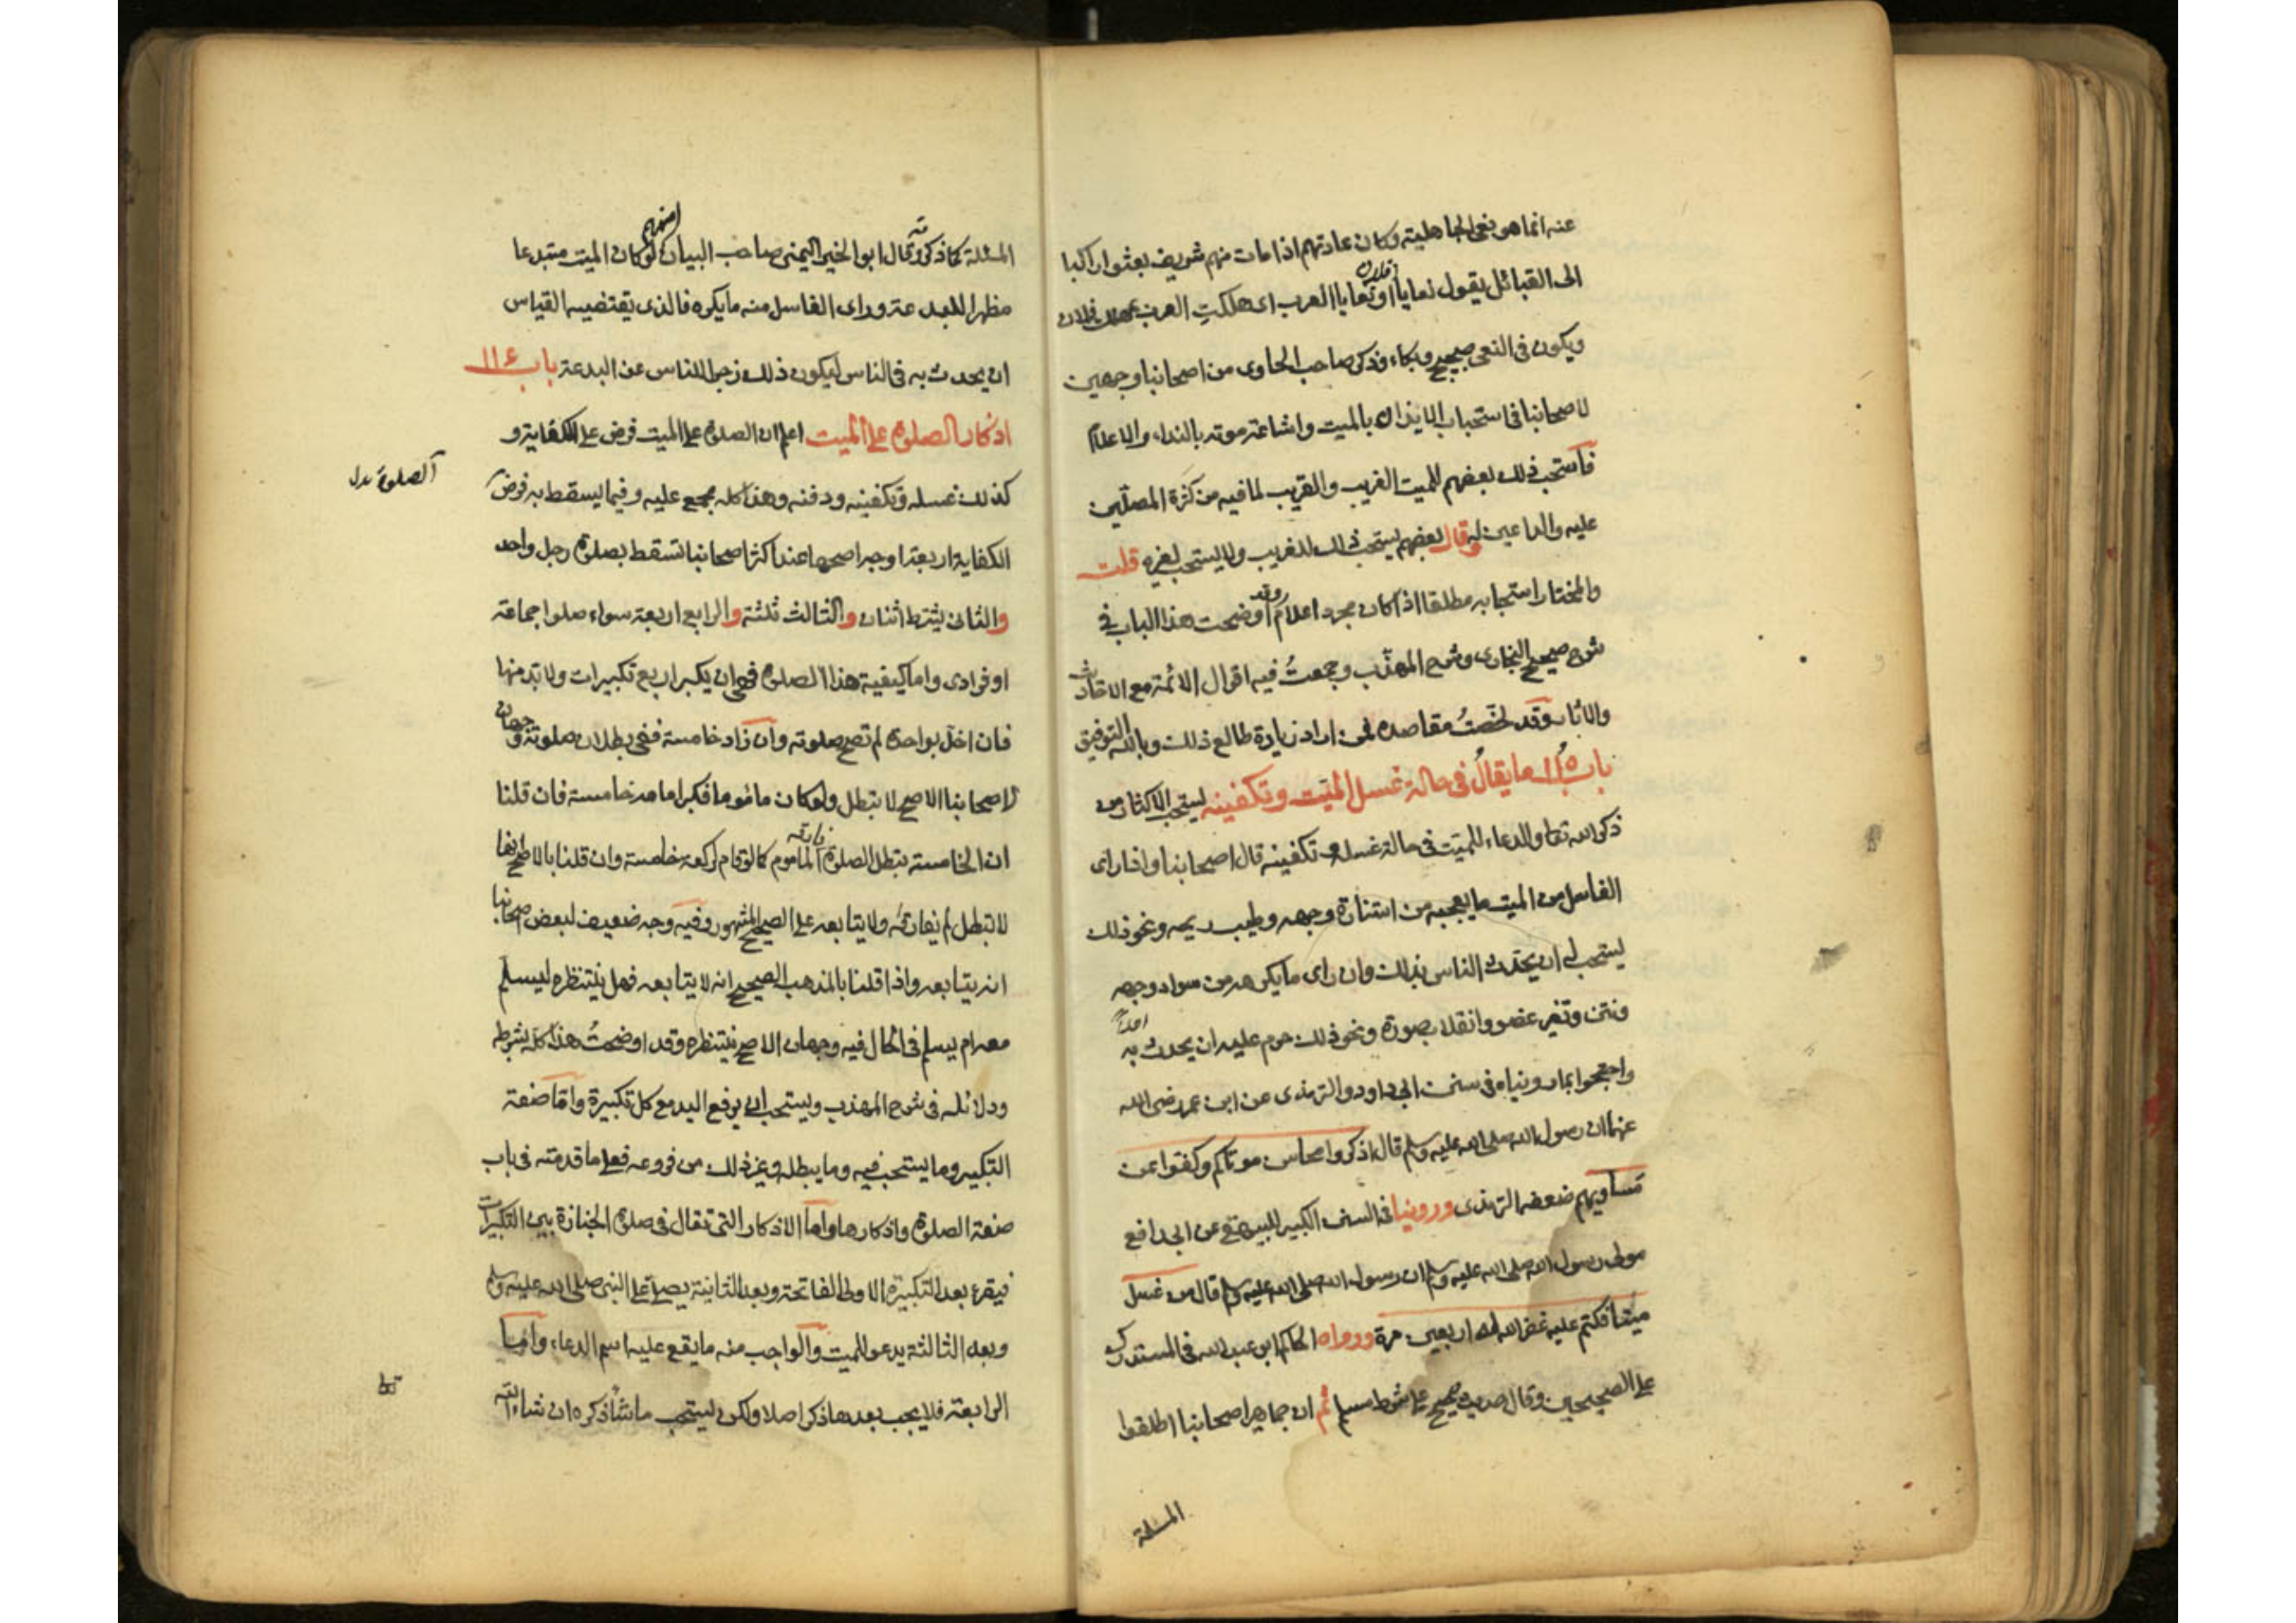 عنه انما هو نعى الجاهلية وكان عادتهم اذا مات منهم شريف بعثوا راكبا
الى القبائل يقول نعايا فلان او نعايا العرب اى هلكت العرب فلان
ويكون فى النعى صحيح وبكاء وذكر صاحب الحاوى من اصحابنا وجهين
لاصحابنا فى استحباب الايذان بالميت واشاعة موته بالنداء والاعلام
فاستحب ذلك بعضهم للميت الغريب والقريب لما فيه من كثرة المصلّين
عليه والداعين له وقال بعضهم يستحب ذلك للغريب ولا يستحب لغيره قلت
والمختار استحبابه مطلقا اذا كان مجرد اعلام وقد اوضحت هذا الباب فى
شرح صحيح البخارى وشرح المهذّب وجمعتُ فيه اقوال الائمة مع الاحاديث
والاثار وقد لخّصتُ مقاصده فمن اراد زيادة طالع ذلك وبالله التوفيق
باب ١١٥ ما يقال فى حالة غسل الميّت وتكفينه يستحب الاكثار من
ذكر الله تعا والدعاء للميت فى حالة غسله وتكفينه قال اصحابنا واذا راى
الغاسل من الميت ما يعجبه من استنارة وجهه وطيب ريحه ونحو ذلك
يستحب له ان يحدّث الناس بذلك وان راى ما يكرهه من سواد وجهه
ونتن وتغير عضو وانقلاب صورة ونحو ذلك حرم عليه ان يحدث به احدا
واحتجوا بما روينا ه فى سنن ابى داود والترمذى عن ابن عمر رضى الله
عنهما ان رسول الله صلى الله عليه وسلم قال اذكروا محاسن موتاكم وكفّوا عن
مساويهم ضعفه الترمذى وروينا فى السنن الكبير للبيهقى عن ابى رافع
مولى رسول الله صلى الله عليه وسلم ان رسول الله صلى الله عليه وسلم قال من غسل
ميتا فكتم عليه غفر الله له اربعين مرة ورواه الحاكم ابو عبد الله فى المستدرك
على الصحيحين وقال حديث صحيح على شرط مسلم ثم ان جماهير اصحابنا اطلقوا
المسئلة
المسئلة كما ذكرته وقال ابو الخير اليمنى صاحب البيان منهم لو كان الميت مبتدعا
مظهرا للبدعة وراى الغاسل منه ما يكره فالذى يقتضيه القياس
ان يحدث به فى الناس ليكون ذلك زجرا للناس عن البدعة باب ١١٤
اذكار الصلوة على الميت اعلم ان الصلوة على الميت فرض على الكفاية و
كذلك غسله وتكفينه ودفنه وهذا كله مجمع عليه وفيما يسقط به فرض
الصلوة بدل
الكفاية اربعة اوجه اصحها عند اكثر اصحابنا تسقط بصلوة رجل واحد
والثانى يشترط اثنان والثالث ثلثة والرابع اربعة سواء صلوا جماعة
او فرادى واما كيفية هذا الصلوة فهى ان يكبر اربع تكبيرات ولا بد منها
فان اخل بواحدة لم تصح صلوته وان زاد خامسة ففى بطلان صلوته وجهان
لاصحابنا الاصح لا تبطل ولو كان مأموما فكبر امامه خامسة فان قلنا
ان الخامسة تبطل الصلوة فارقه المأموم كما لو قام لركعة خامسة وان قلنا بالاصح انها
لا تبطل لم يفارقه ولا يتابعه على الصحيح المشهور وفيه وجه ضعيف لبعض اصحابنا
انه يتابعه واذا قلنا بالمذهب الصحيح انه لا يتابعه فهل ينتظره ليسلم
معه ام يسلم فى الحال فيه وجهان الاصح ينتظره وقد اوضحتُ هذا كله بشرطه
ودلائله فى شرح المهذب ويستحب ان يرفع اليد مع كل تكبيرة واما صفة
التكبير وما يستحب فيه وما يبطله وغير ذلك من فروعه فعلى ما قدمته فى باب
صفة الصلوة واذكارها واما الاذكار التى تقال فى صلوة الجنازة بين التكبيرات
فيقرء بعد التكبيرة الاولى الفاتحة وبعد الثانية يصلى على النبى صلى الله عليه وسلم
وبعد الثالثة يدعو للميت والواجب منه ما يقع عليه اسم الدعاء واما
الرابعة فلا يجب بعدها ذكر اصلا ولكن يستحب ما سأذكره ان شاء الله
تعا